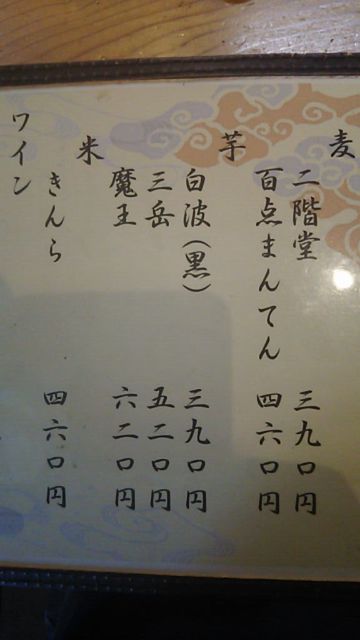 麦
二階堂 三九〇円
百点まんてん 四六〇円
芋
白波(黒) 三九〇円
三岳 五二〇円
魔王 六二〇円
米
きんら 四六〇円
ワイン